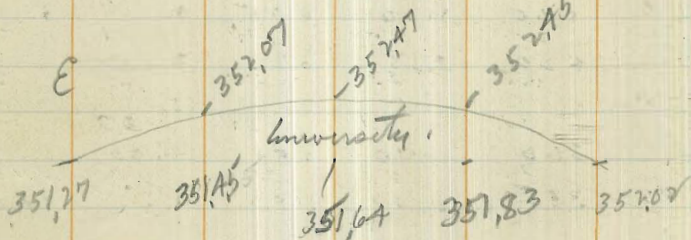 E
352,07 352,47 352,45
University.
351,27 351,45 351,64 351,83 352,02